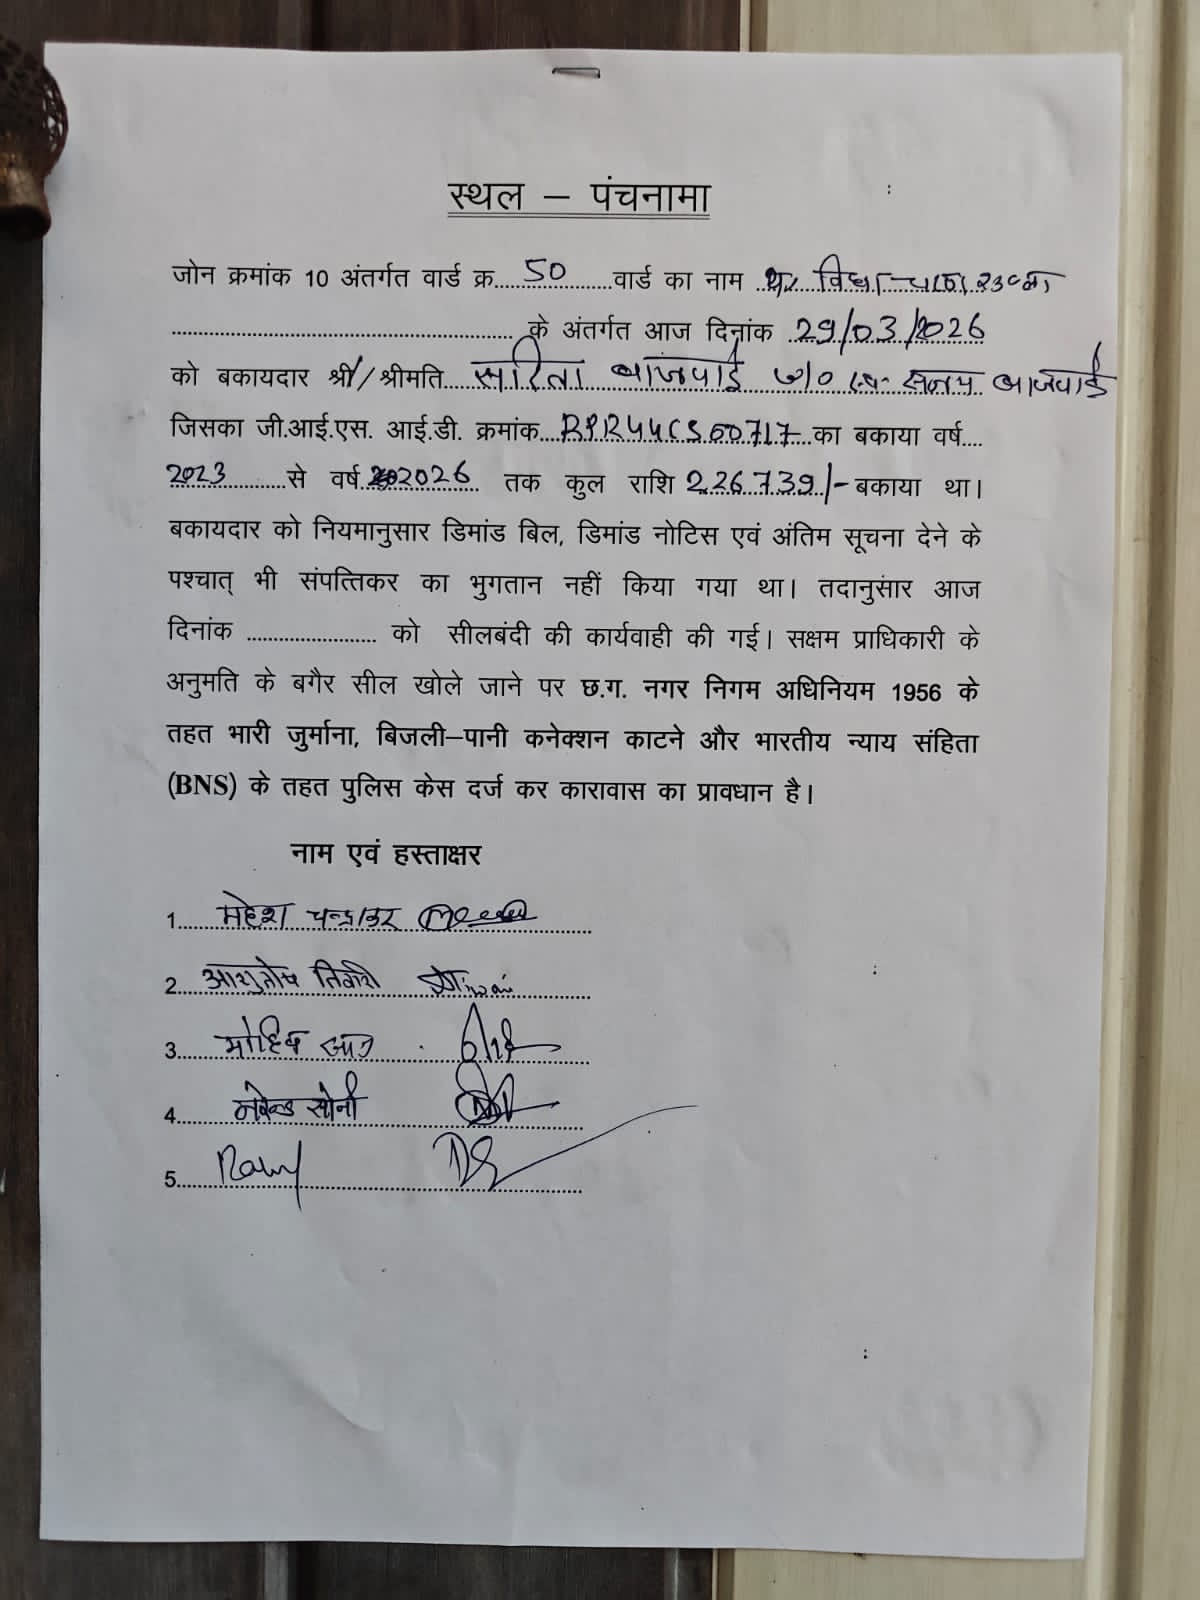 स्थल – पंचनामा
जोन क्रमांक 10 अंतर्गत वार्ड क्र. 50 वार्ड का नाम
के अंतर्गत आज दिनांक 29/03/2026
को बकायदार श्री/श्रीमति सरिता बाजपाई w/o स्व. संजय बाजपाई
जिसका जी.आई.एस. आई.डी. क्रमांक RPR44CS00717 का बकाया वर्ष
2023 से वर्ष 2026 तक कुल राशि 226739/- बकाया था।
बकायदार को नियमानुसार डिमांड बिल, डिमांड नोटिस एवं अंतिम सूचना देने के
पश्चात् भी संपत्तिकर का भुगतान नहीं किया गया था। तदानुसार आज
दिनांक ........................ को सीलबंदी की कार्यवाही की गई। सक्षम प्राधिकारी के
अनुमति के बगैर सील खोले जाने पर छ.ग. नगर निगम अधिनियम 1956 के
तहत भारी जुर्माना, बिजली–पानी कनेक्शन काटने और भारतीय न्याय संहिता
(BNS) के तहत पुलिस केस दर्ज कर कारावास का प्रावधान है।
नाम एवं हस्ताक्षर
1. महेश चन्द्राकर
2. आशुतोष तिवारी
3. मोहित
4. नरेन्द्र सोनी
5.